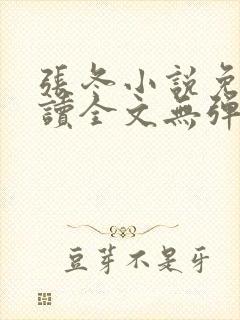 張冬小說免
讀全文無彈
豆芽不是牙